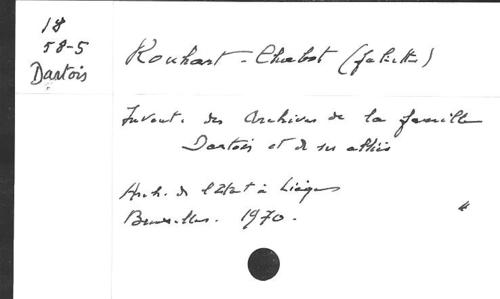 18
58-5
Dartois
Rouhart-Chabot (Juliette)
Invent. des Archives de la famille
Dartois et de ses alliés
Arch. de l'Etat à Liège
Bruxelles. 1970.